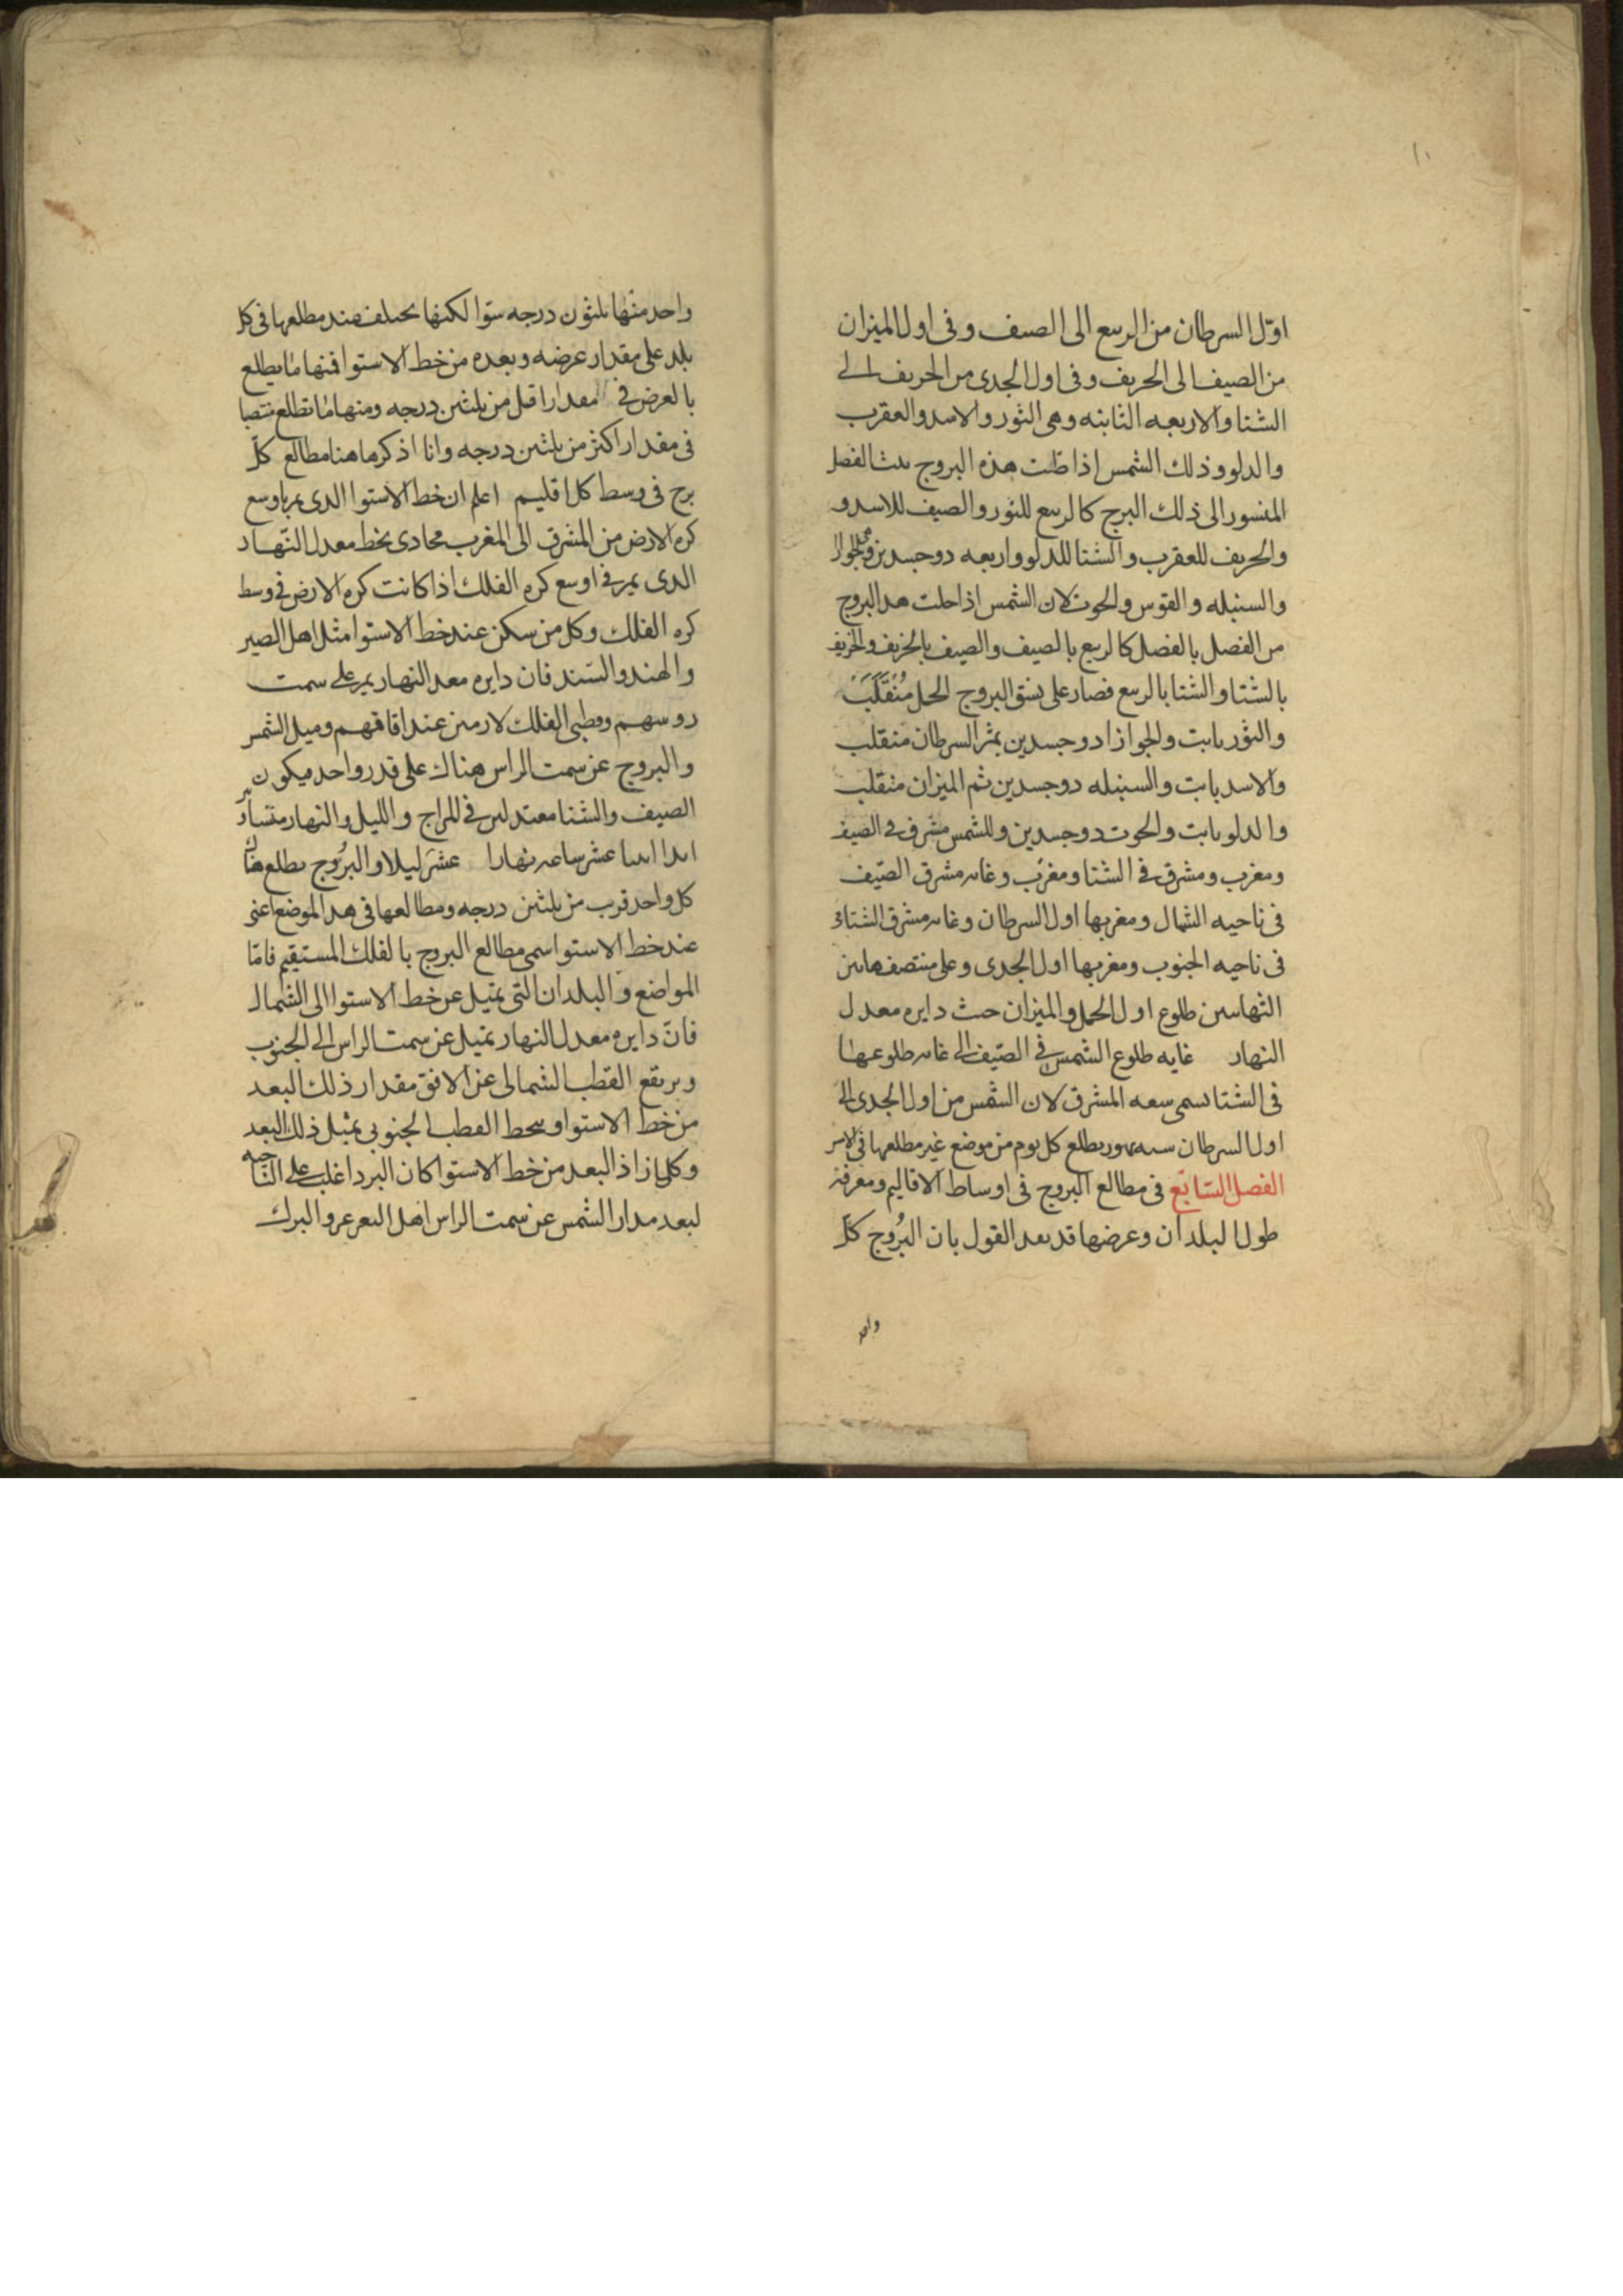 ١٠
اوّل السرطان من الربيع الى الصيف وفى اول الميزان
من الصيف الى الخريف وفى اول الجدى من الخريف الى
الشتا والاربعه الثابته وهى الثور والاسد والعقرب
والدلو وذلك الشمس اذا حلت هذه البروج الفصل
المنسوب الى ذلك البرج كالربيع للثور والصيف للاسد و
والخريف للعقرب والشتا للدلو واربعه دوجسدين وهى الجوزا
والسنبله والقوس والحوت لان الشمس اذا حلت هذا البروج
من الفصل بالفصل كالربيع بالصيف والصيف بالخريف والخريف
بالشتا والشتا بالربيع فصار على نسق البروج الحمل منقلب
والثور ثابت والجوازا دوجسدين ثم السرطان منقلب
والاسد ثابت والسنبله دوجسدين ثم الميزان منقلب
والدلو ثابت والحوت دوجسدين وللشمس مشرق فى الصيف
ومغرب ومشرق فى الشتا ومغرب وغايه مشرق الصّيف
فى ناحيه الشمال ومغربها اول السرطان وغايه مشرق الشتاء
فى ناحيه الجنوب ومغربها اول الجدى وعلى منتصف هاتين
النهايتين طلوع اول الحمل والميزان حيث دايره معدل
النهار غايه طلوع الشمس فى الصّيف الى غايه طلوعها
فى الشتا تسمى سعه المشرق لان الشمس من اول الجدى الى
اول السرطان يطلع كل يوم من موضع غير مطلعها فى الامس
الفصل السّابع فى مطالع البروج فى اوساط الاقاليم ومعرفة
طول البلدان وعرضها قد بعد القول بان البُروج كلّ
واحد
واحد منها ثلثون درجه ستوا لكنها يختلف عند مطلعها فى كل
بلد على مقدار عرضه وبعده من خط الاستوا فمنها ما يطلع
بالعرض فى مقدار اقل من ثلثين درجه ومنها ما تطلع منتصبا
فى مقدار اكثر من ثلثين درجه وانا اذكر ها هنا مطالع كلّ
برج فى وسط كل اقليم اعلم ان خط الاستوا الدى يمر باوسع
كره الارض من المشرق الى المغرب محادى بخط معدل النّهار
الدى يمر فى اوسع كره الفلك اذا كانت كره الارض فى وسط
كره الفلك وكل من سكن عند خط الاستوا مثل اهل الصين
والهند والسّند فان دايره معدل النهار يمر على سمت
روسهم وقطبى الفلك لازمين عند افاقهم وميل الشمس
والبروج عن سمت الراس هناك على قدر واحد فيكون
الصيف والشتا معتدلين فى المزاج والليل والنهار متساويين
ابدا اثنا عشر ساعه نهارا عشر ليلا والبُروج يطلع هناك
كل واحد قرب من ثلثين درجه ومطالعها فى هدا الموضع اعنى
عند خط الاستوا سمى مطالع البروج بالفلك المستقيم فامّا
المواضع والبلدان التى تميل عن خط الاستوا الى الشمال
فانّ دايره معدل النهار تميل عن سمت الراس الى الجنوب
ويرتفع القطب الشمالى عن الافق مقدار ذلك البعد
من خط الاستوا وينحط القطب الجنوبى بمثل ذلك البعد
وكلما زاد البعد من خط الاستوا كان البرد اغلب على النّاحيه
لبعد مدار الشمس عن سمت الراس اهل